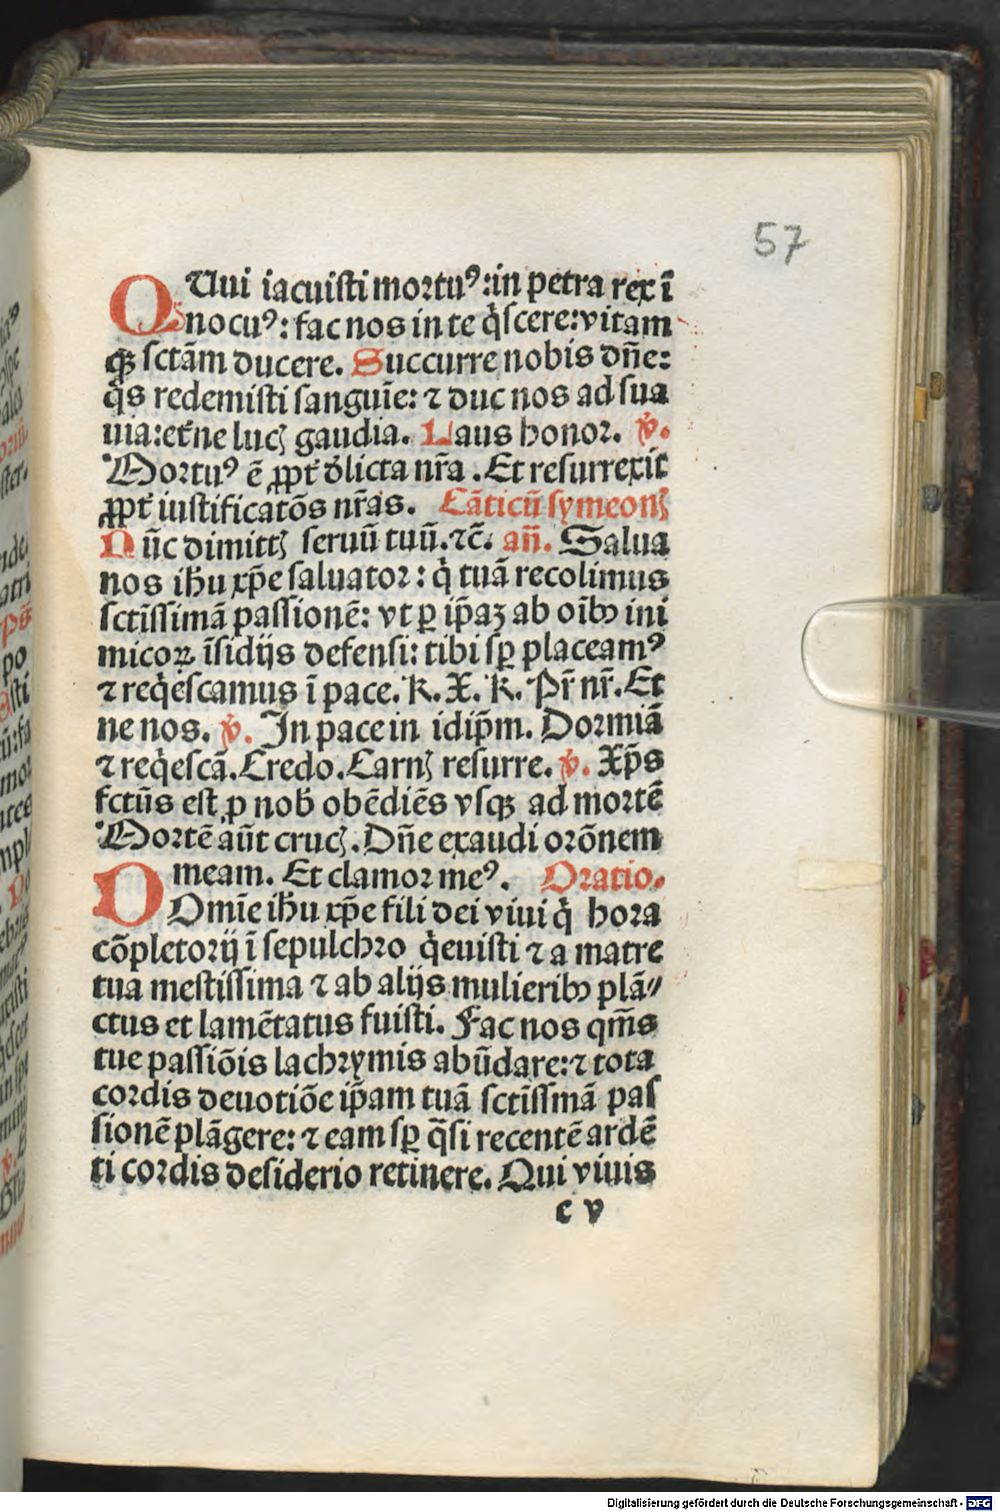 57
QUui iacuisti mortuꝰ: in petra rex ī
nocuꝰ: fac nos in te q̇scere: vitam
qꝫ sctām ducere. Succurre nobis dn̄e:
q̄s redemisti sanguīe: ⁊ duc nos ad sua
uia: et̓ne lucꝭ gaudia. Laus honor. ℣.
Mortuꝰ ē ꝓpt̓ d̓licta nr̄a. Et resurrexit
ꝓpt̓ iustificatōs nr̄as. Cāticū symeonꝭ
Nūc dimittꝭ seruū tuū. ⁊c̄. an̄. Salua
nos ih̄u xp̄e saluator: q̇ tuā recolimus
sctīssimā passionē: vt ꝑ ip̄aꝫ ab oībꝰ ini
micoꝝ īsidijs defensi: tibi sꝑ placeamꝰ
⁊ req̇escamus ī pace. K. X. K. Pr̄ nr̄. Et
ne nos. ℣. In pace in idip̄m. Dormiā
⁊ req̇escā. Credo. Carnꝭ resurre. ℣. Xp̄s
fctūs est ꝓ nob̄ obēdiēs vsqꝫ ad mortē
Mortē aūt crucꝭ. Dn̄e exaudi orōnem
meam. Et clamor meꝰ. Oratio.
DOmīe ih̄u xp̄e fili dei viui q̇ hora
cōpletorij ī sepulchro q̇euisti ⁊ a matre
tua mestissima ⁊ ab alijs mulieribꝰ plā//
ctus et lamētatus fuisti. Fac nos qm̄s
tue passiōis lachrymis abūdare: ⁊ tota
cordis deuotiōe ip̄am tuā sctīssmā pas
sionē plāgere: ⁊ eam sꝑ q̄si recentē ardē
ti cordis desiderio retinere. Qui viuis
c v
Digitalisierung gefördert durch die Deutsche Forschungsgemeinschaft - DFG